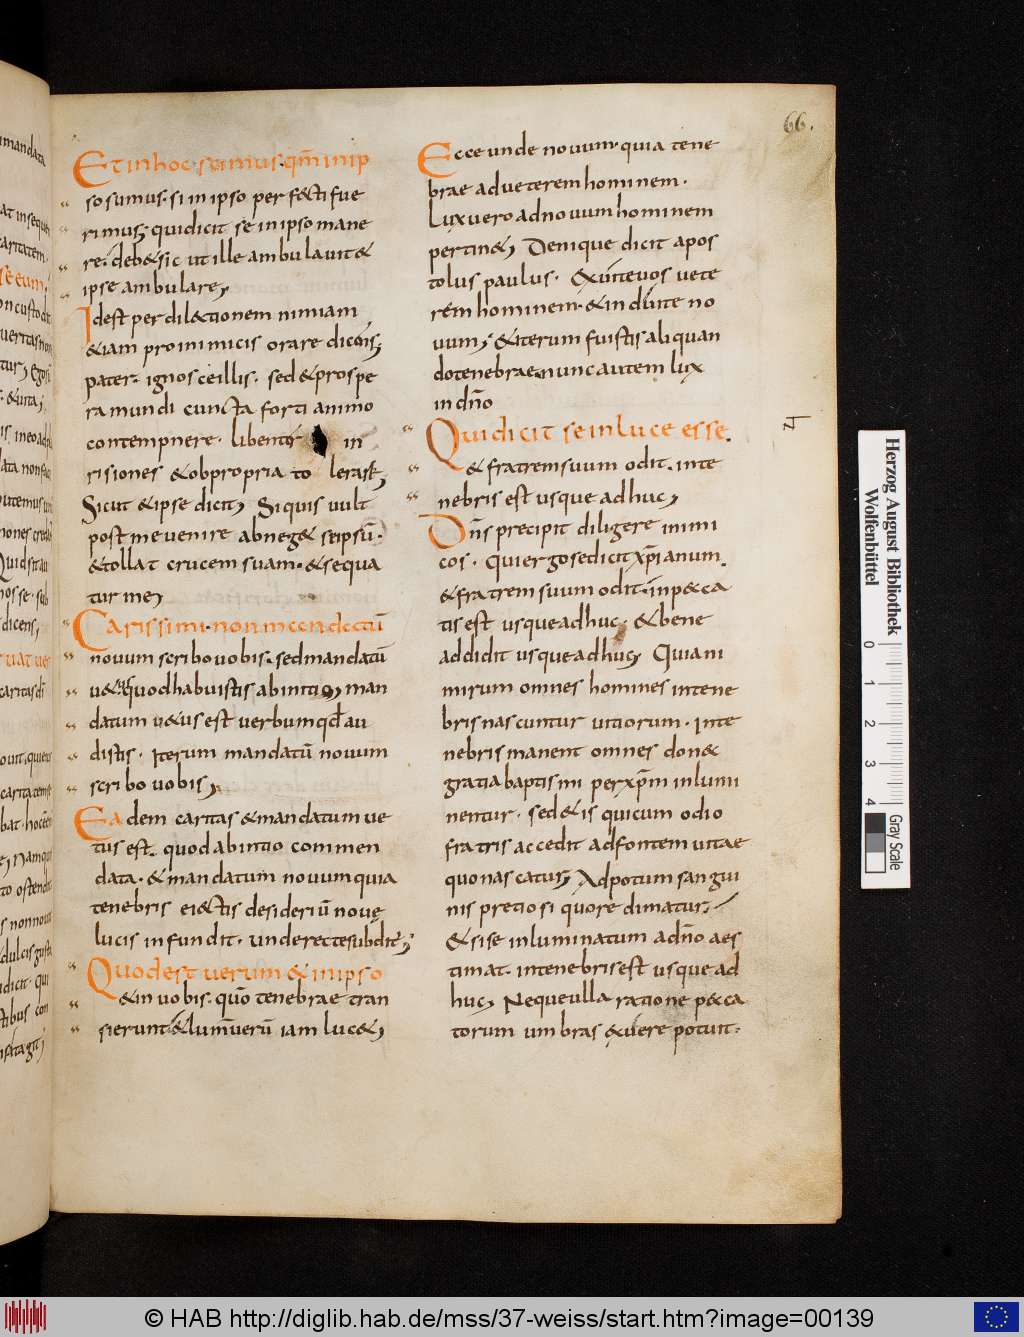 66.
Et in hoc scimus. qm̄ in ip
so sumus. si in ipso perfecti fue
rimus; qui dicit se in ipso mane
re. deb& sic ut ille ambulavit &
ipse ambulare;
Idest per dilectionem nimiam
&iam pro inimicis orare dicens;
pater. ignosce illis. sed & prospe
ra mundi cuncta forti animo
contempnere. libenter in
risiones & obpropria to lerask;
Sicut & ipse dicit; Si quis vult
post me venire abneg& se ipsū.
& tollat crucem suam. & sequa
tur me;
Carissimi. non
novum scribo vobis. sed mandatū
v&us quod habuistis ab initio; man
datum v&us est verbum qd̄ au
distis. Iterum mandatū novum
scribo vobis;
Eadem caritas & mandatum ve
tus est. quod ab initio commen
data. & mandatum novum quia
tenebris eiectis desideriū novę
lucis infundit. unde recte subdit;
Quod est verum & in ipso
& in vobis. quō tenebrae tran
sierunt & lum̄ verū iam luc&;
Ecce unde novum. quia tene
brae ad veterem hominem.
Lux vero ad novum hominem
pertin&; Denique dicit apos
tolus paulus. Exuite vos vete
rēm hominem. & induite no
vum; & iterum fuistis aliquan
do tenebrae nunc autem lux
in dn̄o
Qui dicit se in luce esse.
& fratrem suum odit. inte
nebris est usque adhuc;
Dn̄s precipit diligere inimi
cos. Qui ergo se dicit xp̄ianum.
& fratrem suum odit. in p&ca
tis est usque adhuc. & bene
addidit usque adhuc; Quia ni
mirum omnes homines in tene
bris nascuntur vitiorum. Inte
nebris manent omnes donec
gratia baptismi per xp̄m inlumi
nentur. sed & is qui cum odio
fratris accedit ad fontem vitae
quo nascatur; Ad potum sangui
nis pretiosi quo redimatur;
& si se inluminatum a dn̄o aes
timat. in tenebris est usque ad
huc; Neque ulla ratione p&ca
torum umbras exuere potuit.
Herzog August Bibliothek
Wolfenbüttel
0 1 2 3 4
Gray Scale
© HAB http://diglib.hab.de/mss/37-weiss/start.htm?image=00139